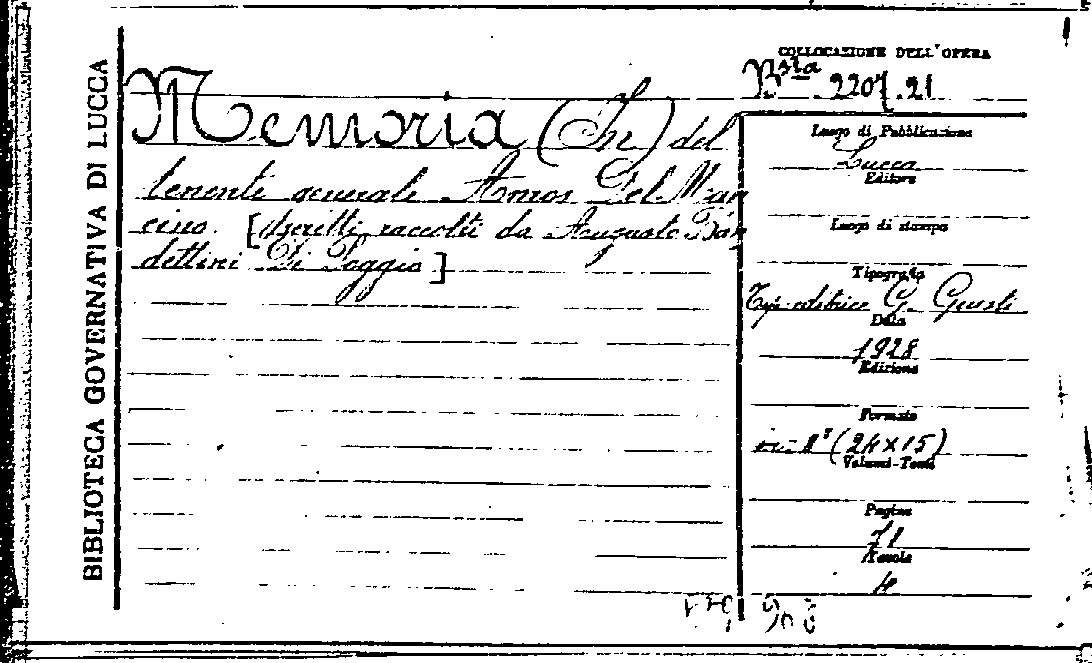 BIBLIOTECA GOVERNATIVA DI LUCCA
Memoria (In) del
tenente generale Amos Del Man
cino. [Scritti raccolti da Augusto Ban
dettini Di Poggio]
COLLOCAZIONE DELL'OPERA
Bsta 2207.21
Luogo di Pubblicazione
Lucca
Editore
Luogo di stampa
Tipografo
Tip. editrice G. Giusti
Data
1928
Edizione
Formato
in-8° (24×15)
Volumi-Tomi
Pagine
71
Tavole
4